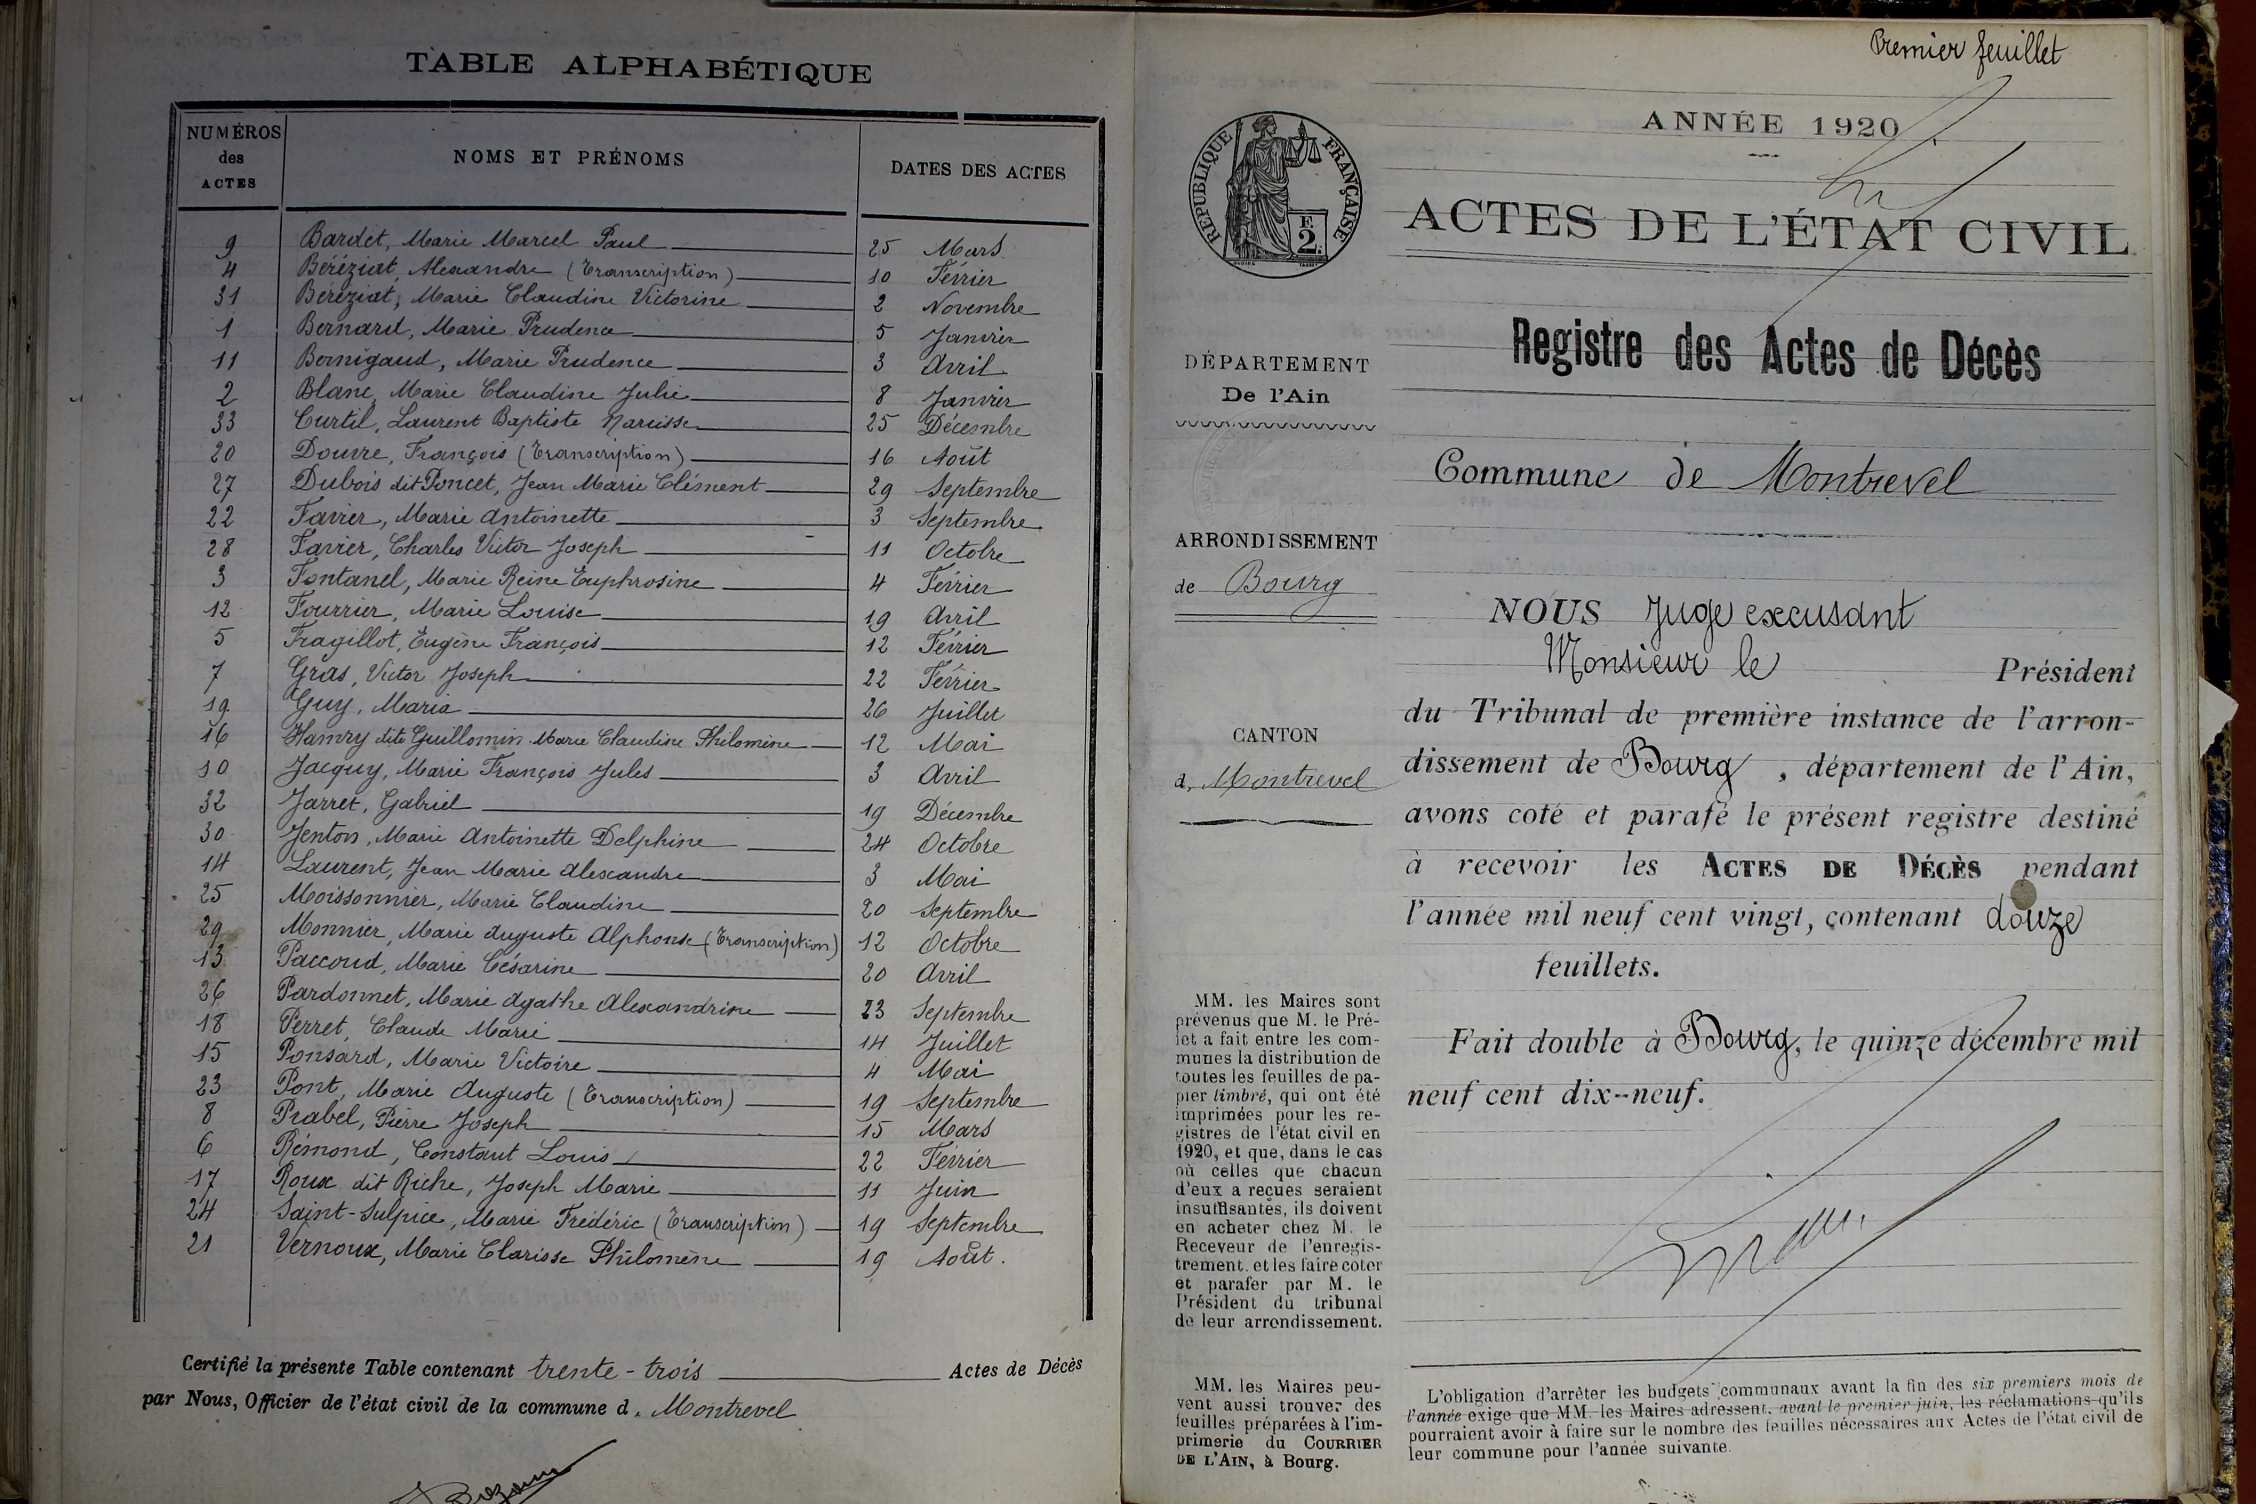 TABLE ALPHABÉTIQUE
NUMÉROS des ACTES NOMS ET PRÉNOMS DATES DES ACTES
9 Bardet, Marie Marcel Paul 25 Mars
4 Béréziat, Alexandre (Transcription) 10 Février
31 Béréziat, Marie Claudine Victorine 2 Novembre
1 Bernard, Marie Prudence 5 Janvier
11 Bernigaud, Marie Prudence 3 Avril
2 Blanc, Marie Claudine Julie 8 Janvier
33 Curtil, Laurent Baptiste Narcisse 25 Décembre
20 Douvre, François (Transcription) 16 Août
27 Dubois dit Poncet, Jean Marie Clément 29 Septembre
22 Favier, Marie Antoinette 3 Septembre
28 Favier, Charles Victor Joseph 11 Octobre
3 Fontanel, Marie Reine Euphrosine 4 Février
12 Fourrier, Marie Louise 19 Avril
5 Fragillot, Eugène François 12 Février
7 Gras, Victor Joseph 22 Février
19 Guy, Maria 26 Juillet
16 Hamry dite Guillomin Marie Claudine Philomène 12 Mai
10 Jacquy, Marie François Jules 3 Avril
32 Jarret, Gabriel 19 Décembre
30 Jenton, Marie Antoinette Delphine 24 Octobre
14 Laurent, Jean Marie Alexandre 3 Mai
25 Moissonnier, Marie Claudine 20 Septembre
29 Monnier, Marie Auguste Alphonse (Transcription) 12 Octobre
13 Paccoud, Marie Césarine 20 Avril
26 Pardonnet, Marie Agathe Alexandrine 23 Septembre
18 Perret, Claude Marie 14 Juillet
15 Ponsard, Marie Victoire 4 Mai
23 Pont, Marie Auguste (Transcription) 19 Septembre
8 Prabel, Pierre Joseph 15 Mars
6 Rémond, Constant Louis 22 Février
17 Roux dit Riche, Joseph Marie 11 Juin
24 Saint-Sulpice, Marie Frédéric (Transcription) 19 Septembre
21 Vernoux, Marie Clarisse Philomène 19 Août.
Certifié la présente Table contenant trente-trois Actes de Décès
par Nous, Officier de l'état civil de la commune d. Montrevel
Premier feuillet
ANNÉE 1920
RÉPUBLIQUE FRANÇAISE
2 F.
ACTES DE L'ÉTAT CIVIL
Registre des Actes de Décès
DÉPARTEMENT
De l'Ain
Commune de Montrevel
ARRONDISSEMENT
de Bourg
CANTON
d. Montrevel
NOUS Juge excusant
Monsieur le Président
du Tribunal de première instance de l'arron-
dissement de Bourg, département de l'Ain,
avons coté et parafé le présent registre destiné
à recevoir les ACTES DE DÉCÈS pendant
l'année mil neuf cent vingt, contenant douze
feuillets.
Fait double à Bourg, le quinze décembre mil
neuf cent dix-neuf.
MM. les Maires sont
prévenus que M. le Pré-
fet a fait entre les com-
munes la distribution de
toutes les feuilles de pa-
pier timbré, qui ont été
imprimées pour les re-
gistres de l'état civil en
1920, et que, dans le cas
où celles que chacun
d'eux a reçues seraient
insuffisantes, ils doivent
en acheter chez M. le
Receveur de l'enregis-
trement, et les faire coter
et parafer par M. le
Président du tribunal
de leur arrondissement.
MM. les Maires peu-
vent aussi trouver des
feuilles préparées à l'im-
primerie du COURRIER
DE L'AIN, à Bourg.
L'obligation d'arrêter les budgets communaux avant la fin des six premiers mois de
l'année exige que MM. les Maires adressent, avant le premier juin, les réclamations qu'ils
pourraient avoir à faire sur le nombre des feuilles nécessaires aux Actes de l'état civil de
leur commune pour l'année suivante.